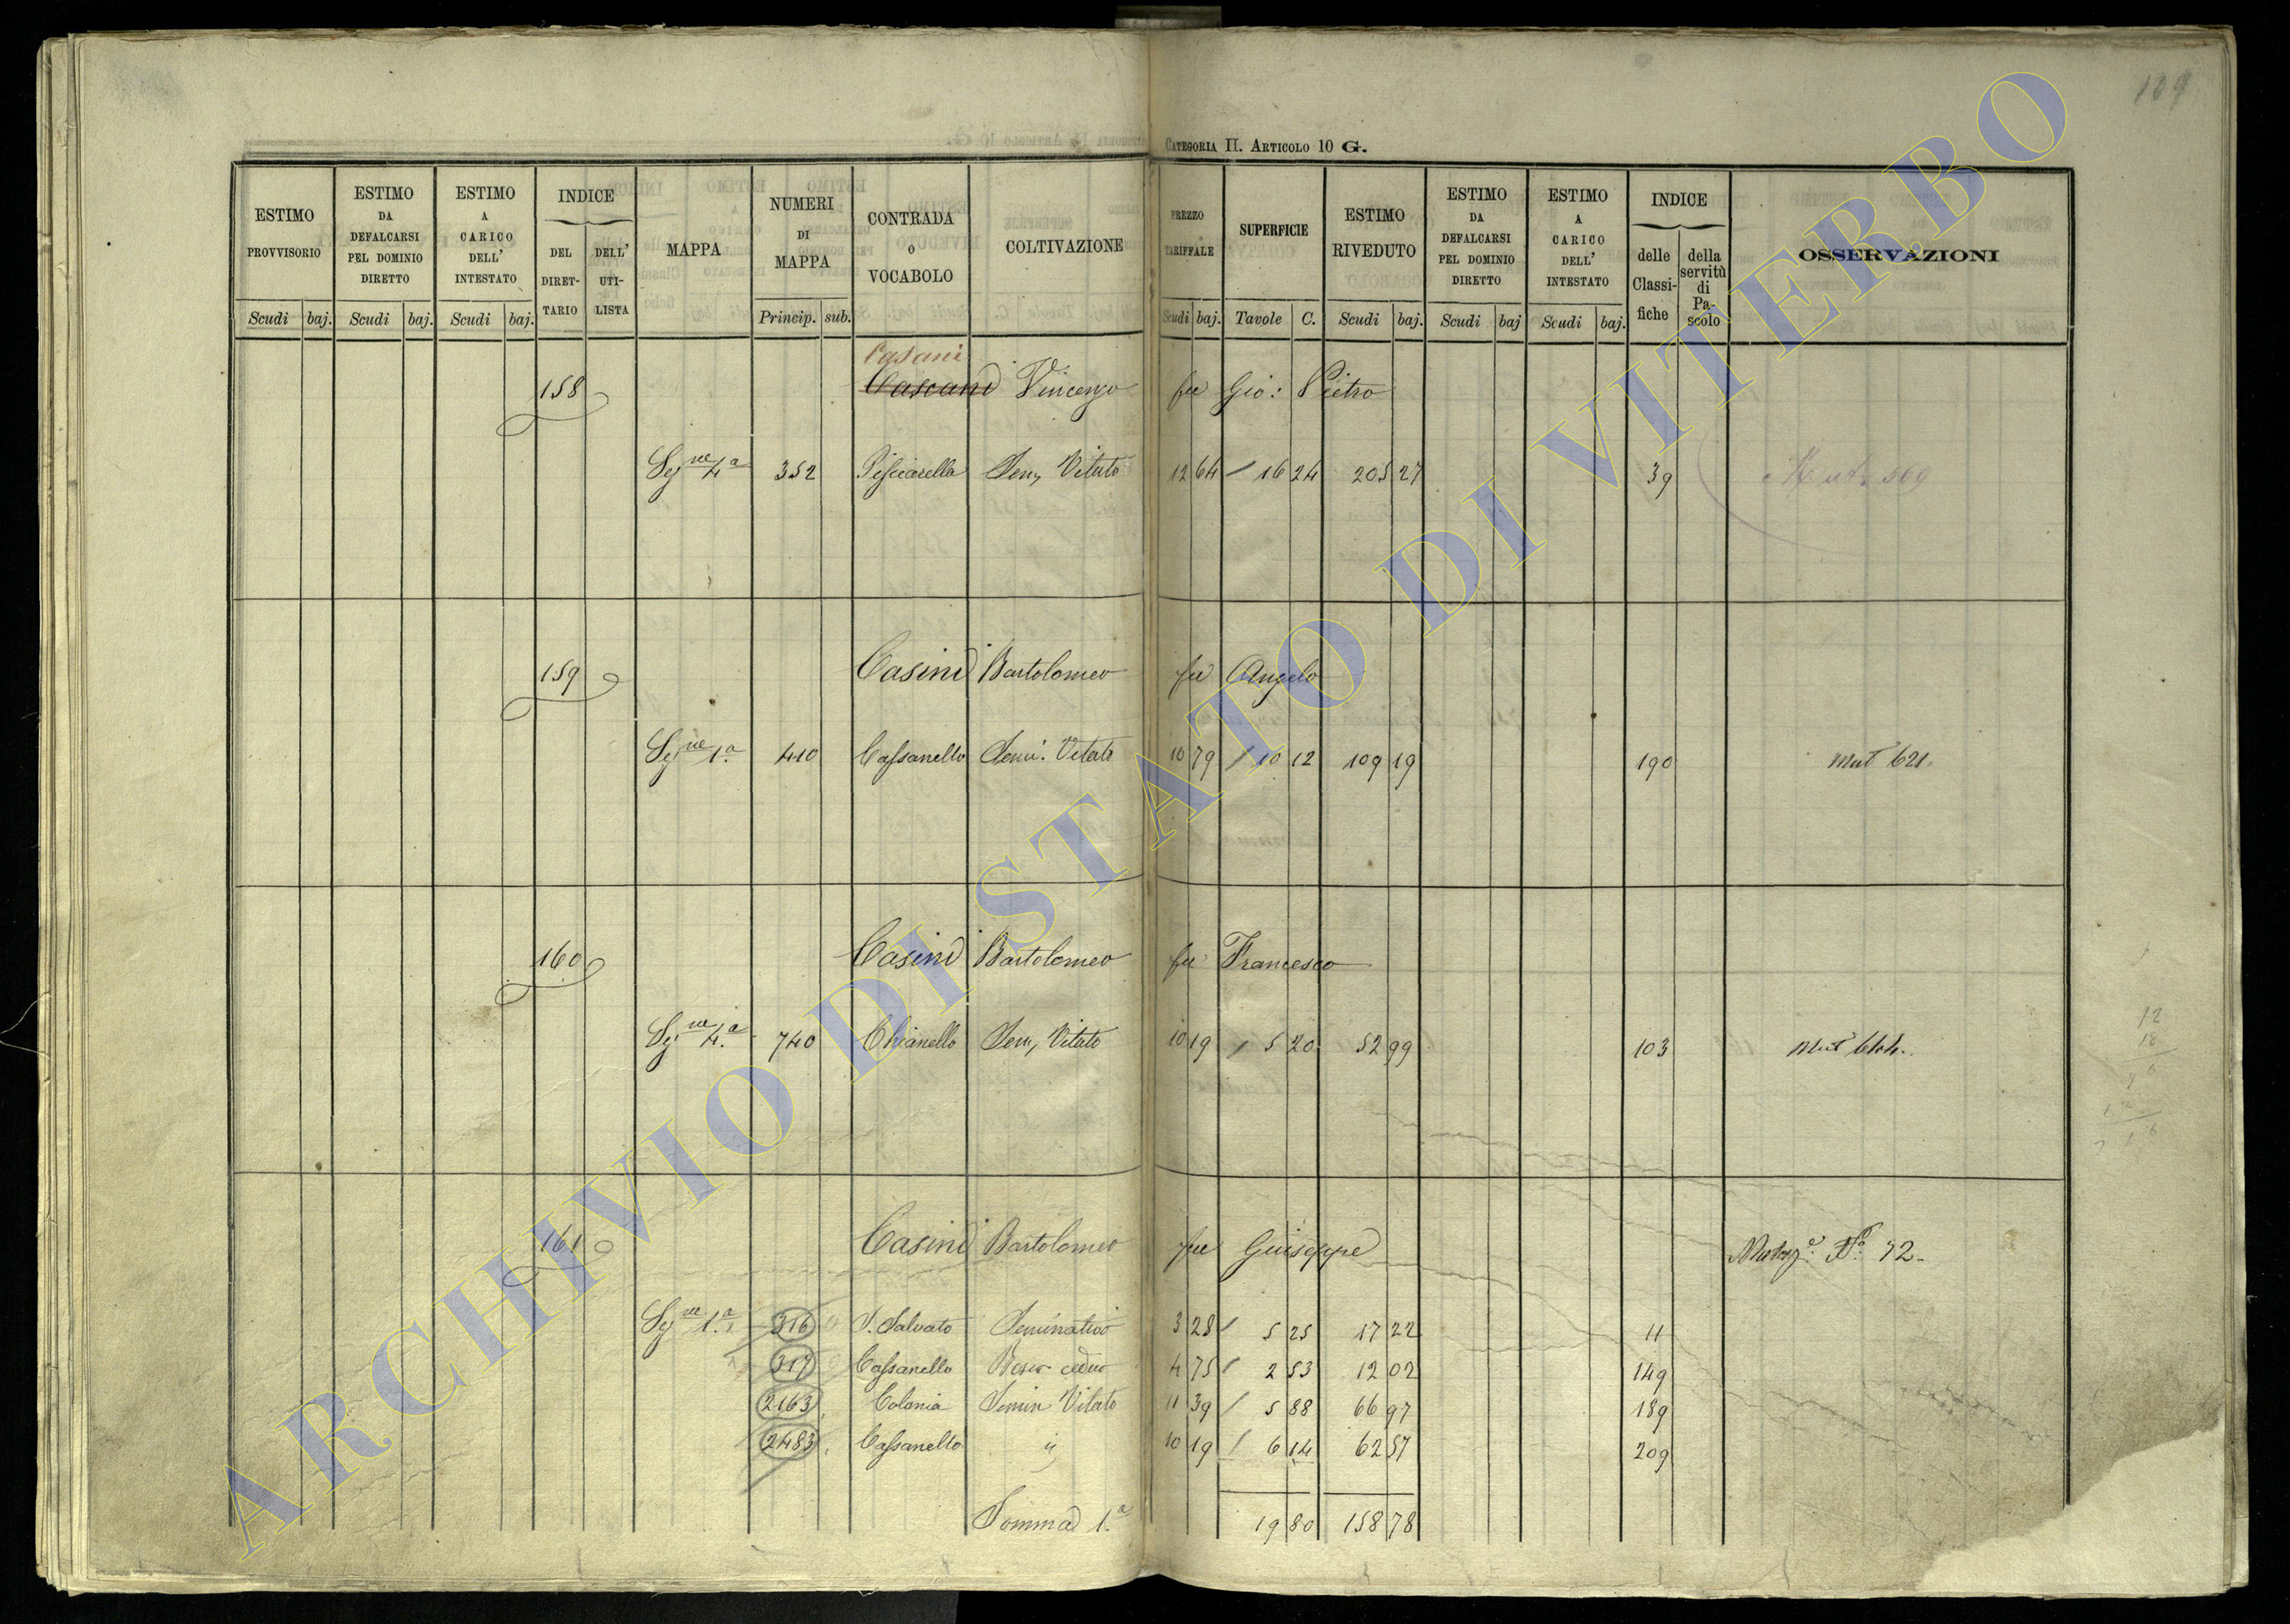 109
CATEGORIA II. ARTICOLO 10 G.
ESTIMO PROVVISORIO Scudi baj.
ESTIMO DA DEFALCARSI PEL DOMINIO DIRETTO Scudi baj.
ESTIMO A CARICO DELL' INTESTATO Scudi baj.
INDICE DEL DIRET-TARIO DELL' UTI-LISTA
MAPPA
NUMERI DI MAPPA Princip. sub.
CONTRADA O VOCABOLO
COLTIVAZIONE
PREZZO TARIFFALE Scudi baj.
SUPERFICIE Tavole C.
ESTIMO RIVEDUTO Scudi baj.
ESTIMO DA DEFALCARSI PEL DOMINIO DIRETTO Scudi baj
ESTIMO A CARICO DELL' INTESTATO Scudi baj.
INDICE delle Classi-fiche della servitù di Pa-scolo
OSSERVAZIONI
Casani
158 Cascani Vincenzo fu Gio: Pietro
Segne 4a 352 Pisciarella Sem, Vitato 12 64 16 24 205 27 39 Mut. 569
159 Casini Bartolomeo fu Angelo
Segne 1a 410 Cassanello Semi. Vitato 10 79 10 12 109 19 190 Mut 621.
160 Casini Bartolomeo fu Francesco
Segne 4a 740 Chianello Sem, Vitato 10 19 5 20 52 99 103 Mut
161 Casini Bartolomeo fu Giuseppe No.
Segne 1a 316 S. Salvato Seminativo 3 28 5 25 17 22 11
317 Cassanello Bosco ceduo 4 75 2 53 12 02 149
2163 Colonia Semin Vitato 11 39 5 88 66 97 189
2483 Cassanello ij 10 19 6 14 62 57 209
Somma 1a 19 80 158 78
12
18
ARCHIVIO DI STATO DI VITERBO